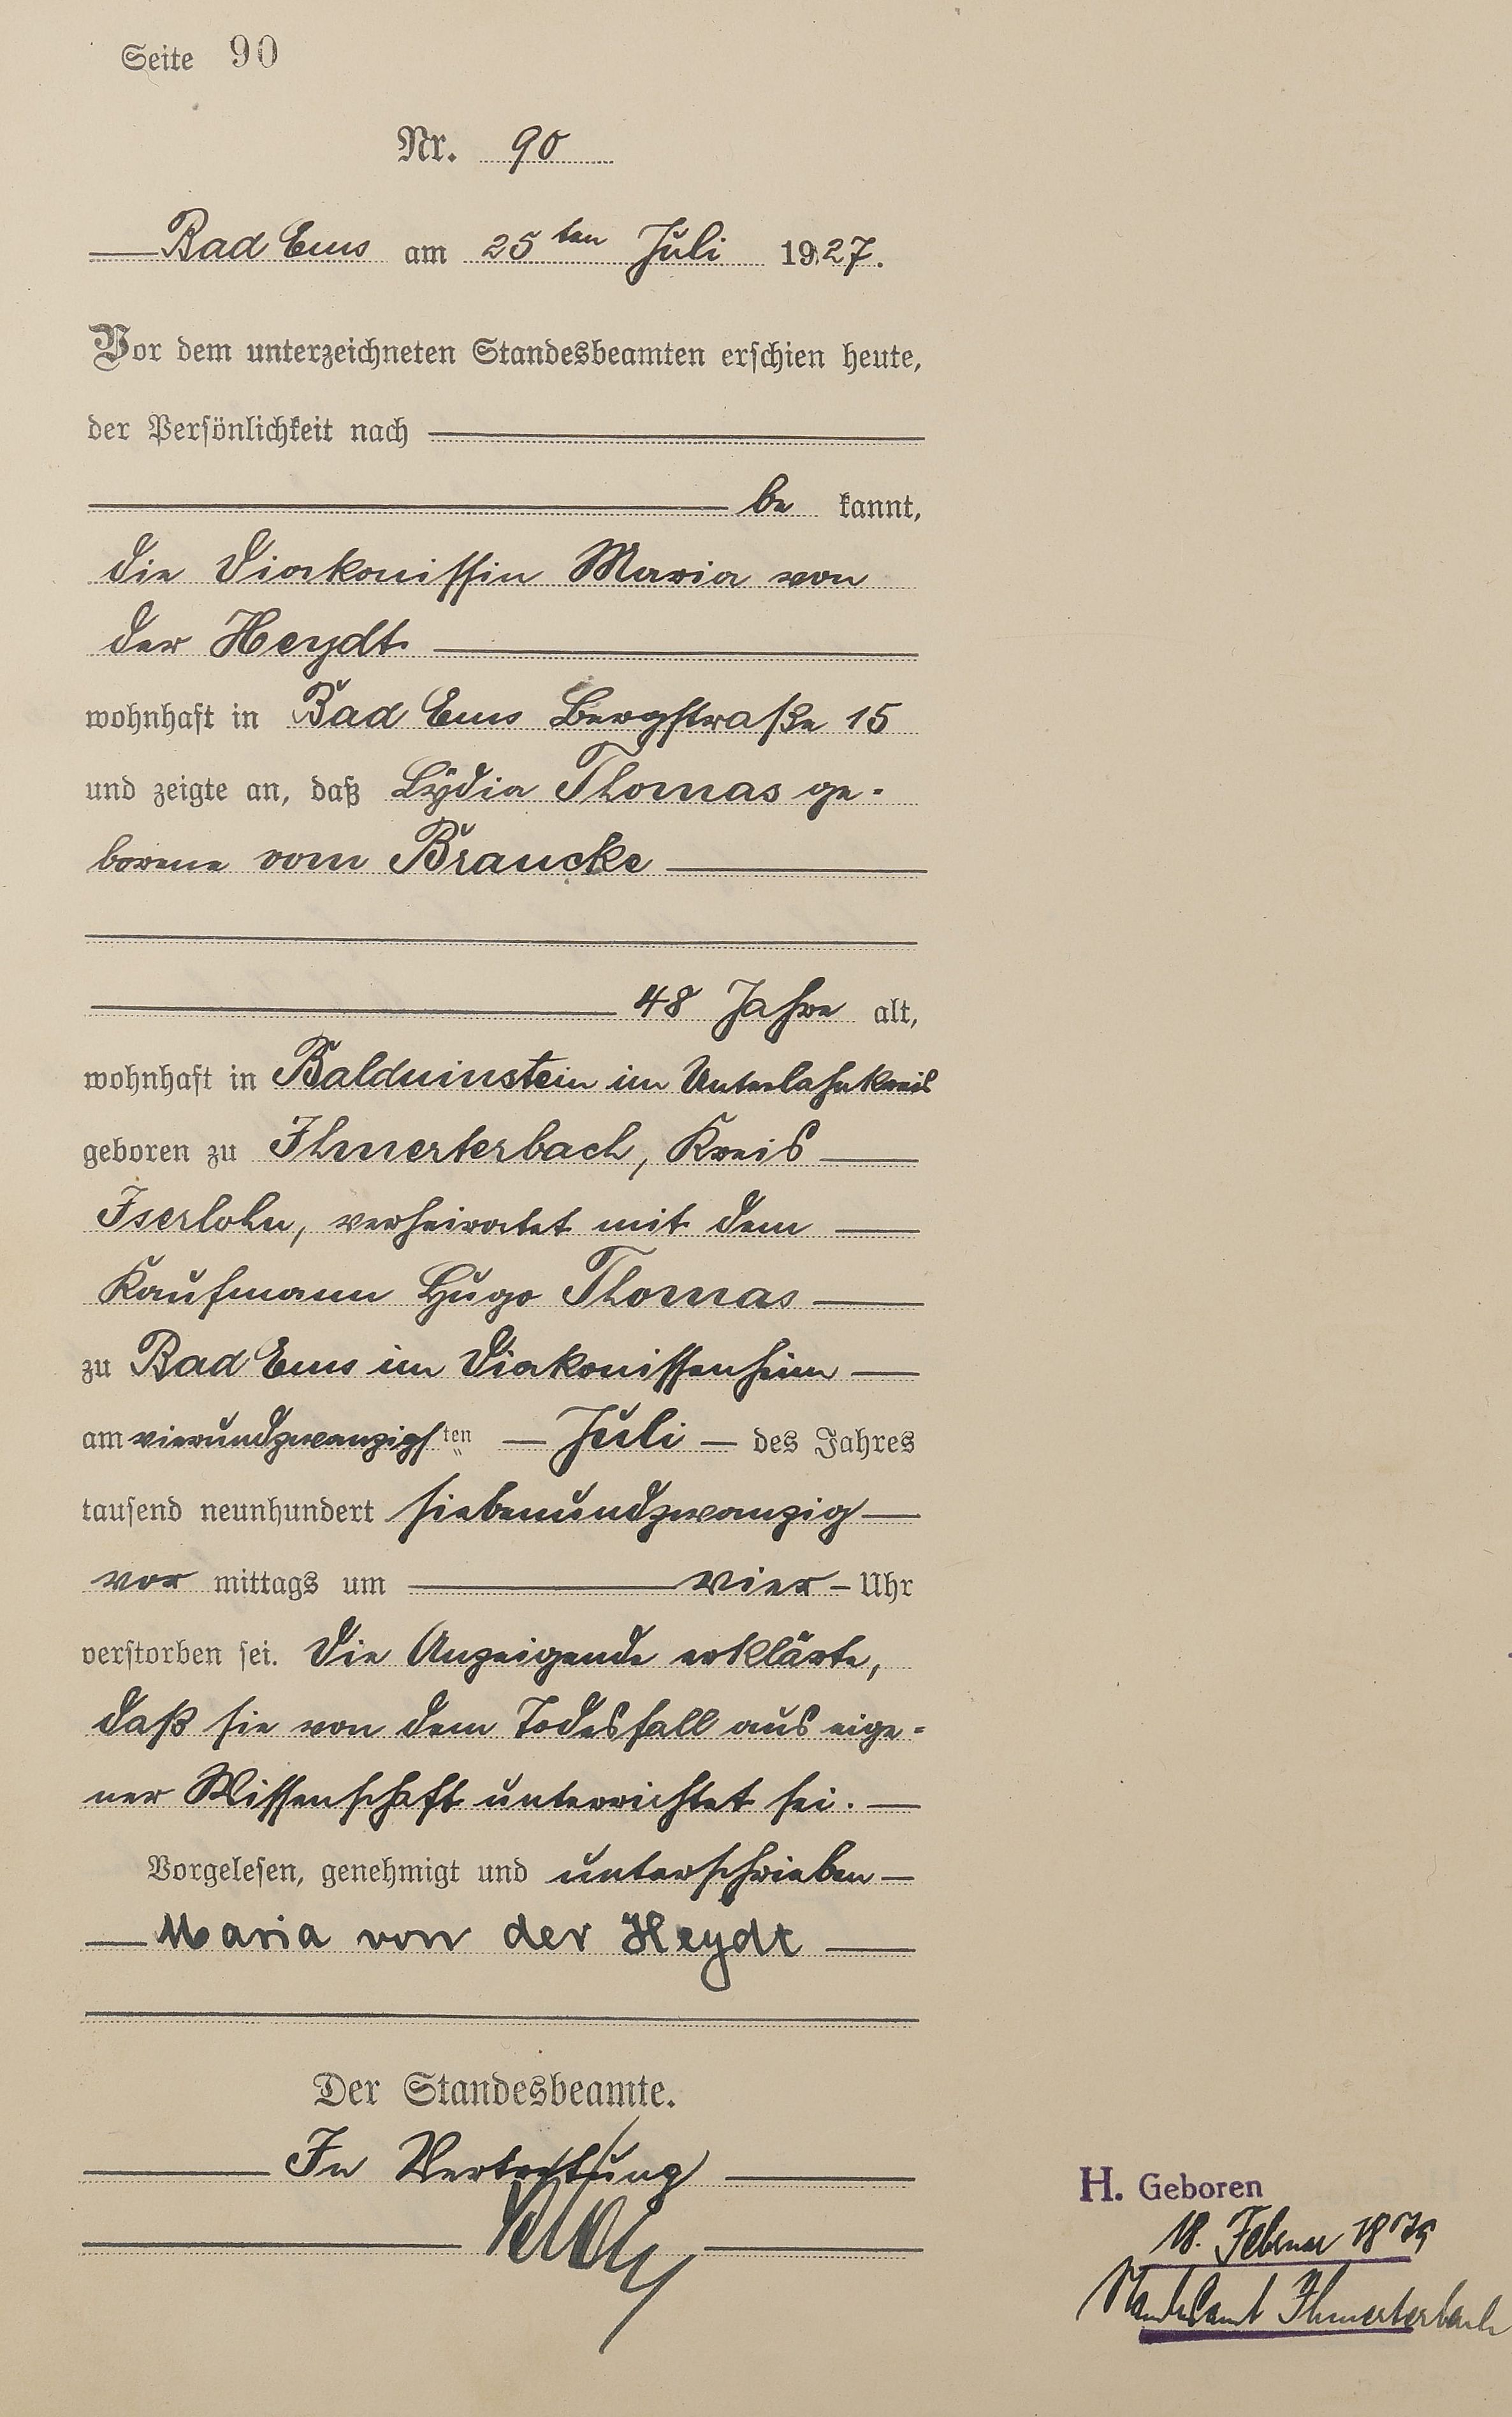 Seite 90
Nr. 90
Bad Ems am 25ten Juli 1927.
Vor dem unterzeichneten Standesbeamten erschien heute,
der Persönlichkeit nach
be kannt,
die Diakonissin Maria von
der Heydt
wohnhaft in Bad Ems Bergstraße 15
und zeigte an, daß Lydia Thomas ge-
borene vom Braucke
48 Jahre alt,
wohnhaft in Balduinstein im Unterlahnkreis
geboren zu Ihmerterbach, Kreis
Iserlohn, verheiratet mit dem
Kaufmann Hugo Thomas
zu Bad Ems im Diakonissenheim
am vierundzwanzigsten Juli des Jahres
tausend neunhundert siebenundzwanzig
vor mittags um vier Uhr
verstorben sei. Die Anzeigende erklärte,
daß sie von dem Todesfall aus eige-
ner Wissenschaft unterrichtet sei.
Vorgelesen, genehmigt und unterschrieben
Maria von der Heydt
Der Standesbeamte.
In Vertretung
H. Geboren
18. Februar 1879
Standesamt Ihmerterbach